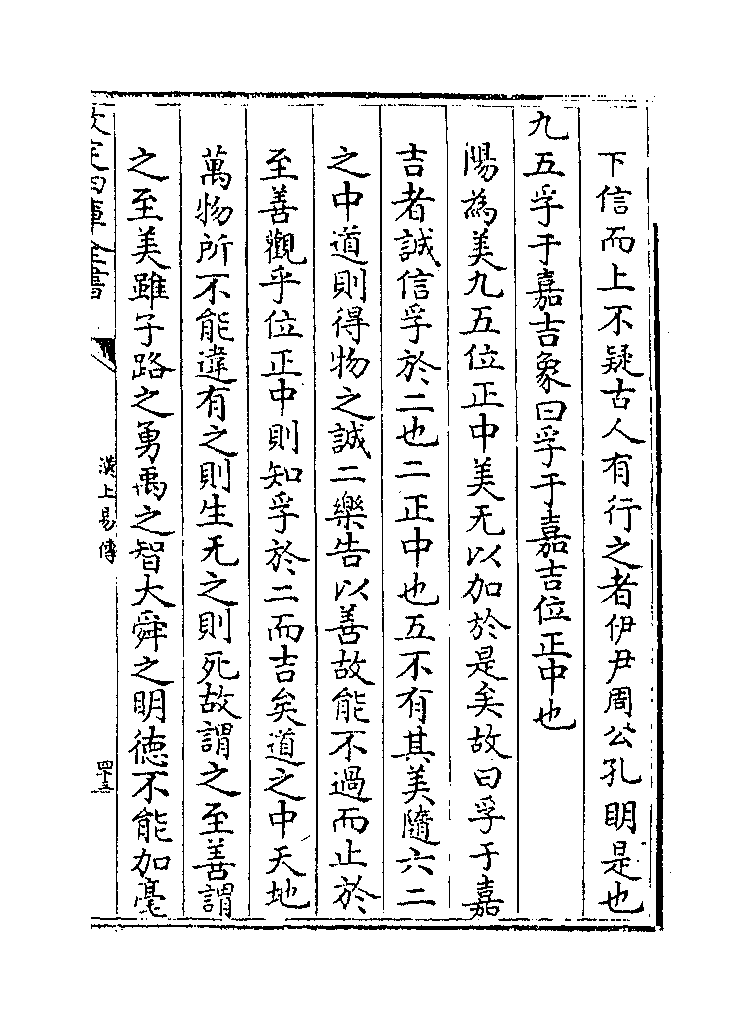 下信而上不疑古人有行之者伊尹周公孔明是也
九五孚于嘉吉象曰孚于嘉吉位正中也
陽為美九五位正中美无以加於是矣故曰孚于嘉
吉者誠信孚於二也二正中也五不有其美隨六二
之中道則得物之誠二樂告以善故能不過而止於
至善觀乎位正中則知孚於二而吉矣道之中天地
萬物所不能違有之則生无之則死故謂之至善謂
之至美雖子路之勇禹之智大舜之明德不能加毫
欽定四庫全書
漢上易傳
四十五